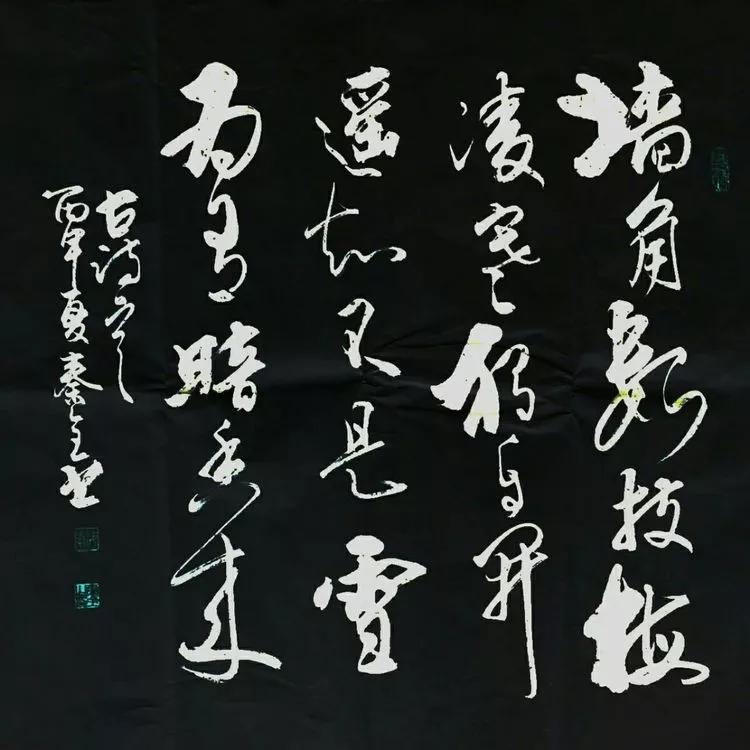 墙角数枝梅
凌寒独自开
遥知不是雪
为有暗香来
古诗
夏秦书